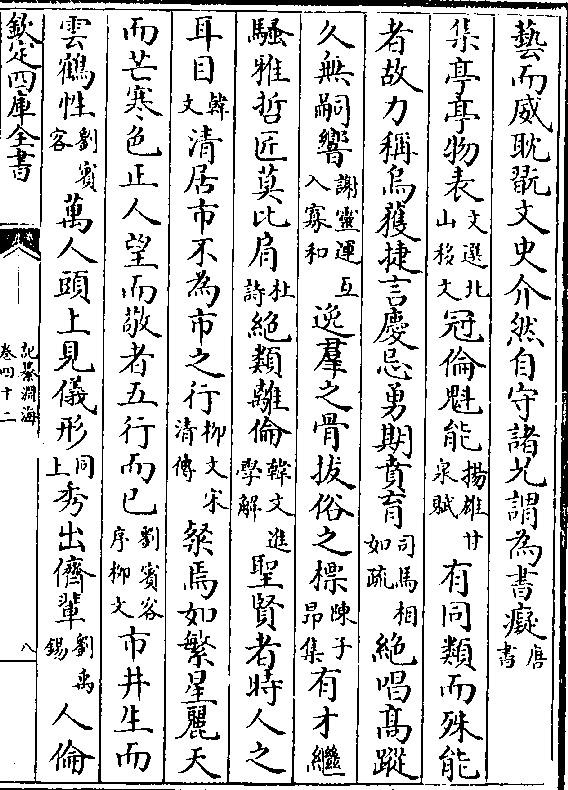 藝而威耽翫文史介然自守諸兄謂為書癡唐書
集亭亭物表文選北山移文冠倫魁能揚雄甘泉賦有同類而殊能
者故力稱烏獲捷言慶忌勇期賁育司馬相如疏絶唱髙蹤
久無嗣響謝靈運互入寡和逸羣之骨拔俗之標陳子昻集有才繼
騷雅哲匠莫比肩杜詩絕類離倫韓文進學解聖賢者時人之
耳目韓文清居市不為市之行柳文宋清傳粲焉如繁星麗天
而芒寒色正人望而敬者五行而已劉賓客序柳文市井生而
雲鶴性劉賓客萬人頭上見儀形同上秀出儕輩劉禹錫人倫
欽定四庫全書
記纂淵海
卷四十二
八